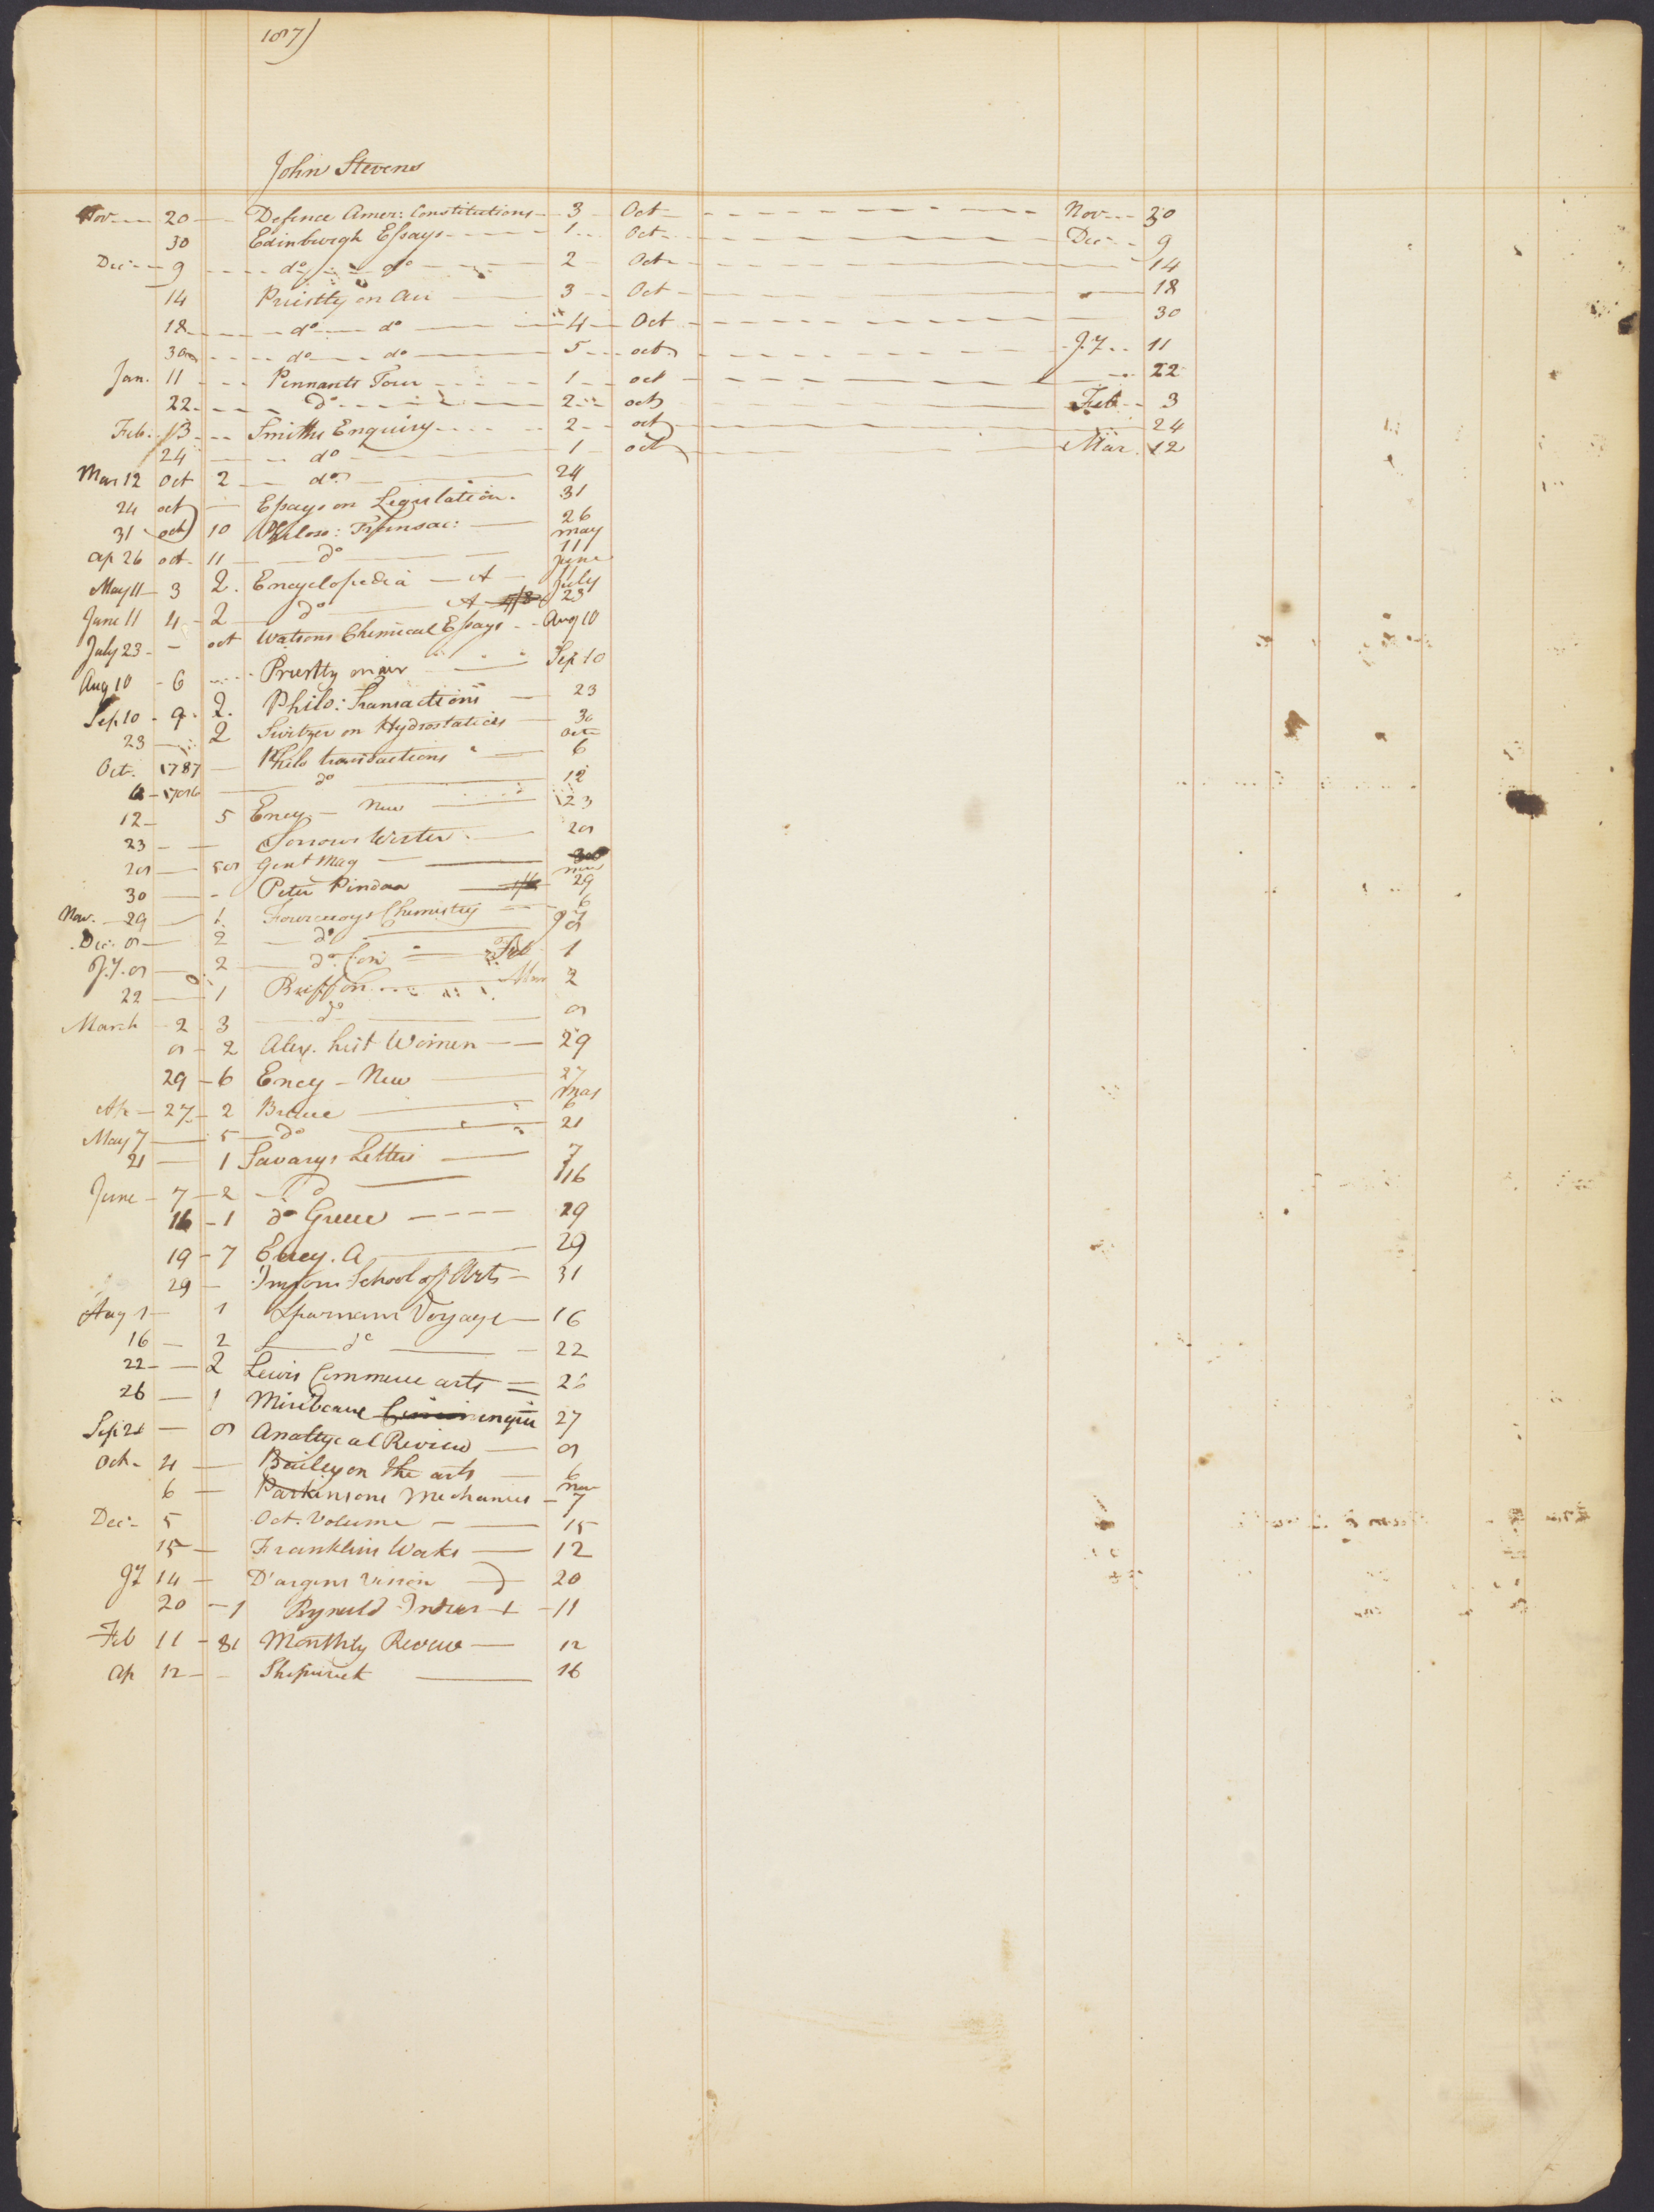 187)
John Stevens
Nov 20 Defence Amer: Constitutions 3 Oct Nov 30
30 Edinburgh Essays 1 Oct Dec 9
Dec 9 do do 2 Oct 14
14 Priestly on Air 3 Oct 18
18 do do 4 Oct 30
30 do do 5 oct J.y 11
Jan. 11 Pennants Tour 1 oct 22
22 do 2 oct Feb 3
Feb. 3 Smiths Enquiry 2 oct 24
24 do 1 oct Mar. 12
Mar 12 Oct 2 do 24
24 oct Essays on Legislation. 31
31 oct 10 Philoso: Transac: 26
ap 26 oct. 11 do may 11
May 11 3 2. Encyclopedia A June
June 11 4 2 do A July 23
July 23 oct Watsons Chemical Essays Aug 10
Aug 10 6 Priestly on air Sep 10
Sep 10 9 2. Philo: Transactions 23
23 2 Switzer on Hydrostatics 30
Oct. 1787 Philo transactions oct 6
6 do 12
12 5 Ency New 23
23 Sorrows Werter 28
28 58 Gent Mag
30 Peter Pindar nov 29
Nov. 29 1 Fourcroys Chemistry 6
Dec. 8 2 do J.y 8
J.y. 8 2 do Con Feb 1
22 1 Buffon Mar 2
March 2 3 do 8
8 2 Alex. hist Women 29
29 6 Ency New 27
Ap 27 2 Bruce may 6
May 7 5 do 21
21 1 Savarys Letters 7
June 7 2 do 16
16 1 do Greece 29
19 7 Ency. A 29
29 Imisons School of Arts 31
Aug 1 1 Sparmans Voyage 16
16 2 do 22
22 2 Lewis Commerce arts 26
26 1 Miribeaue enquir 27
Sep 28 8 Analtycal Review 8
Oct. 4 Bailey on the arts 6
6 Parkinsons Mechanics nov 7
Dec. 5 Oct. Volume 15
15 Franklins Works 12
Jy 14 D'argens Vision 20
20 1 Rynald Indies 11
Feb 11 81 Monthly Review 12
ap 12 Shipwreck 16